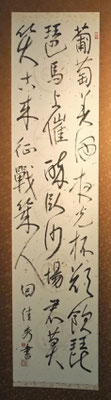 葡萄美酒夜光杯欲飲琵
琶馬上催醉臥沙場君莫
笑古來征戰幾人回 佳秀書